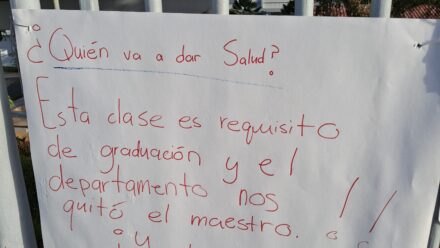 ¿Quién va a dar Salud?
Esta clase es requisito
de graduación y el
departamento nos
quitó el maestro.
¿Y